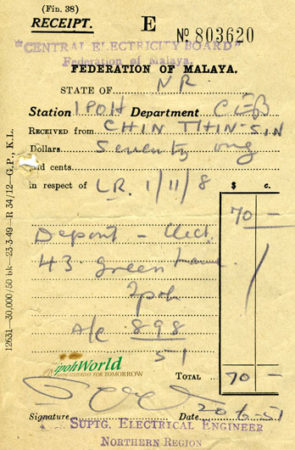 (Fin. 38)
RECEIPT. E No 803620
"CENTRAL ELECTRICITY BOARD"
Federation of Malaya.
FEDERATION OF MALAYA.
STATE OF NR
Station IPOH Department CEB
RECEIVED from CHIN THIN-SIN
Dollars Seventy only
and cents.
in respect of LR. 1/11/8 $ c.
70 -
Deposit - Elect.
43 green
Ipoh
A/c 898
51
ipohWorld
TOMORROW
TOTAL 70 -
Signature Date 20-6-51
SUPTG. ELECTRICAL ENGINEER
NORTHERN REGION
12631-30,000/50 bk-23-3-49-R 34/12-G.P., K.L.